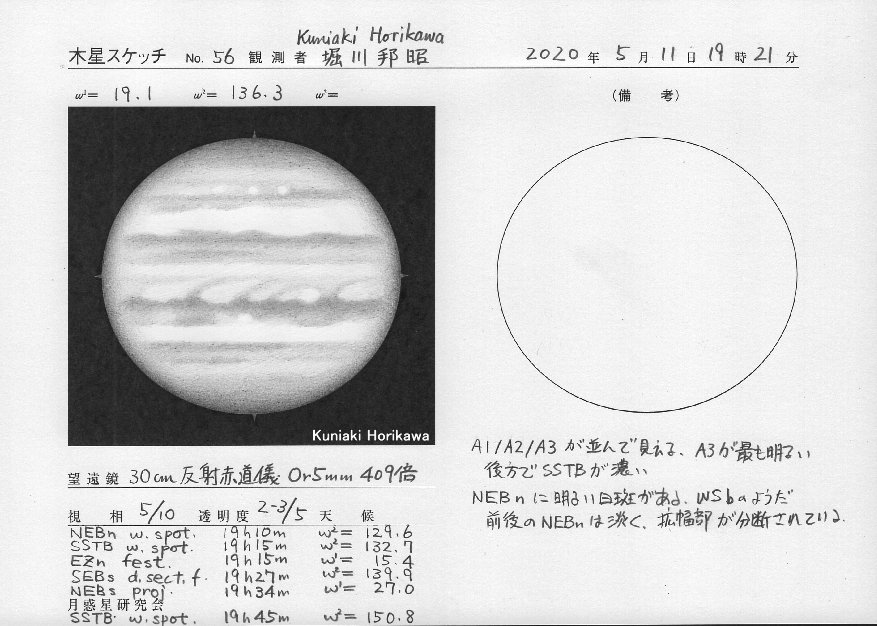 Kuniaki Horikawa
木星スケッチ No. 56 観測者 堀川邦昭 2020年 5月 11日 19時 21分
ω¹= 19.1 ω²= 136.3 ω³=
(備 考)
Kuniaki Horikawa
望遠鏡 30cm 反射赤道儀 Or5mm 409倍
視 相 5/10 透明度 2-3/5 天 候
NEBn w. spot. 19h10m ω²= 129.6
SSTB w. spot. 19h15m ω²= 132.7
EZn fest. 19h15m ω¹= 15.4
SEBs d. sect. f. 19h27m ω²= 139.9
NEBs proj. 19h34m ω¹= 27.0
月惑星研究会
SSTB w. spot. 19h45m ω²= 150.8
A1/A2/A3 が並んで見える、A3が最も明るい
後方でSSTBが濃い
NEBnに明るい白斑がある、WSbのようだ
前後のNEBnは淡く、拡幅部が分断されている.